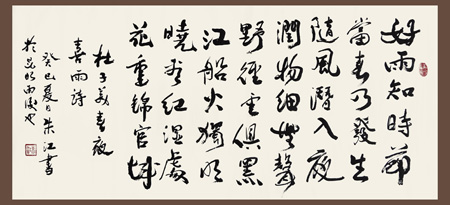 好雨知時節
當春乃發生
隨風潛入夜
潤物細無聲
野徑雲俱黑
江船火獨明
曉看紅濕處
花重錦官城
杜子美春夜
喜雨詩
癸巳夏日朱江書
於昆明雨